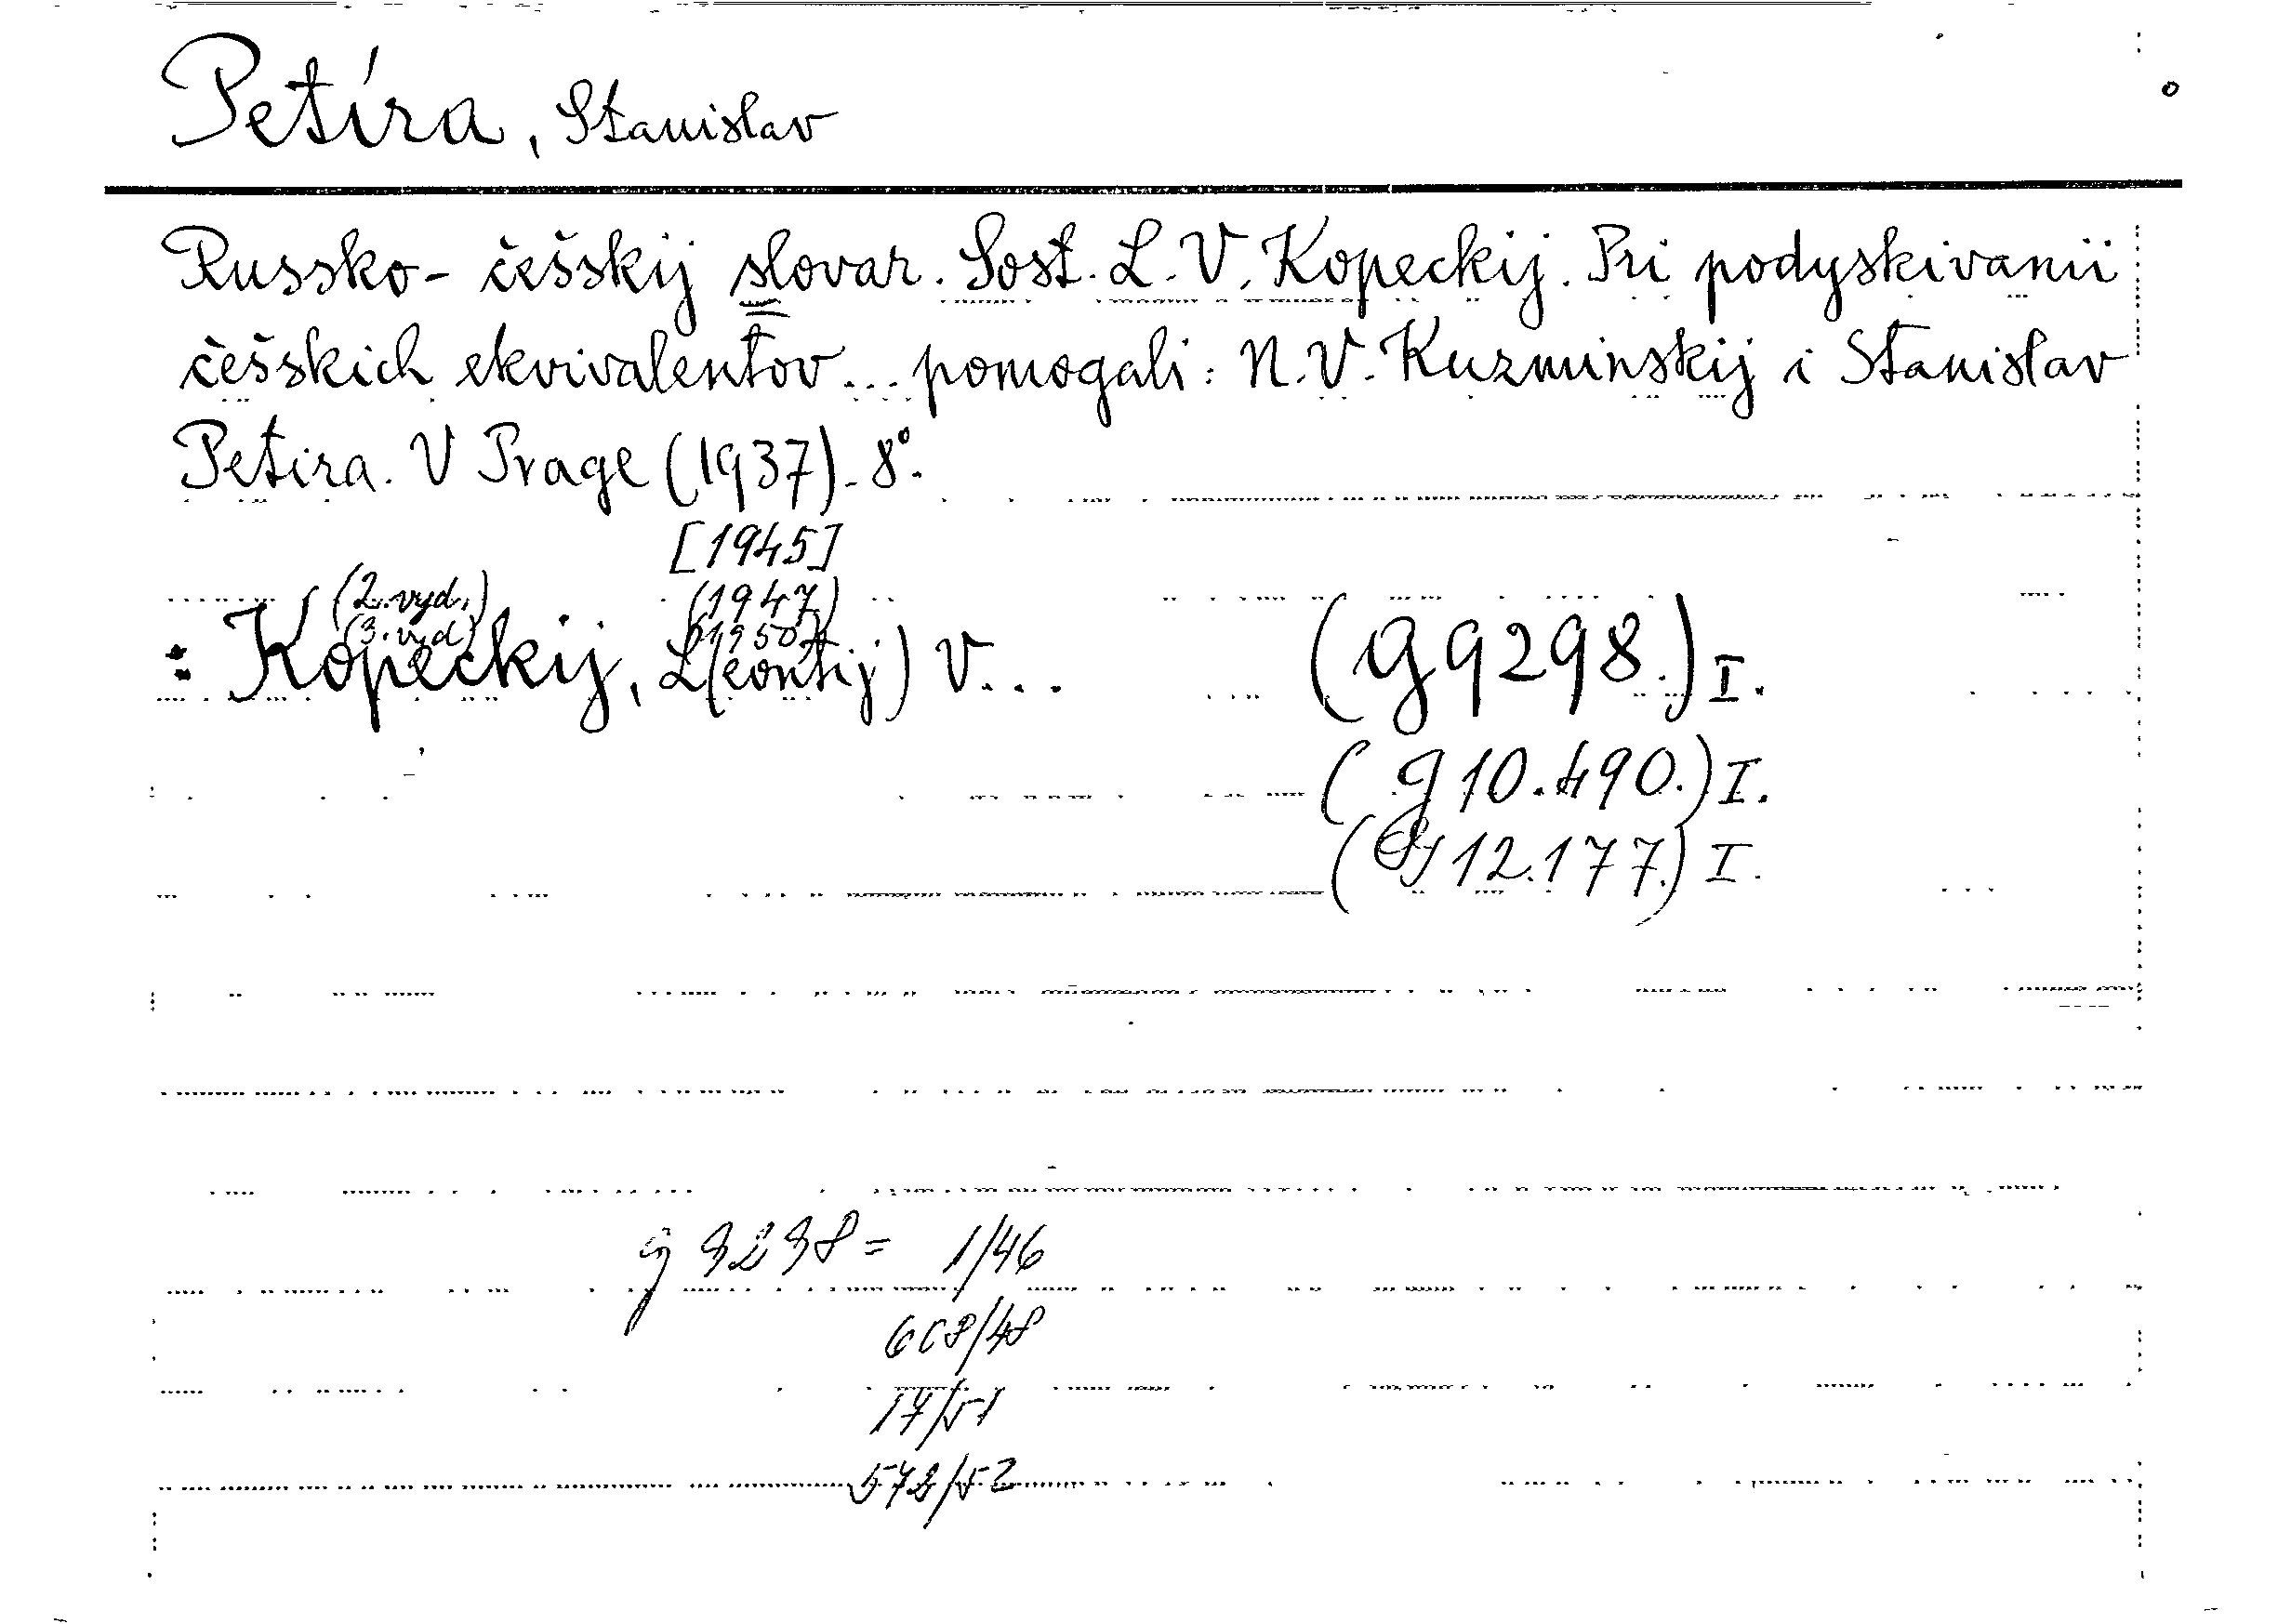 Petíra, Stanislav
Russko-češskij slovar. Sost. L. V. Kopeckij. Pri podyskivanii
češskich ekvivalentov... pomogali: N. V. Kuzminskij i Stanislav
Petira. V Prage (1937). 8°.
[1945]
(2. vyd.) (1947)
(3. vyd.) (1950)
: Kopeckij, L(eontij) V... (g 9298.) I.
(g 10.490.) I.
(g 12.177.) I.
g 9298 = 1/46
608/48
17/51
572/52